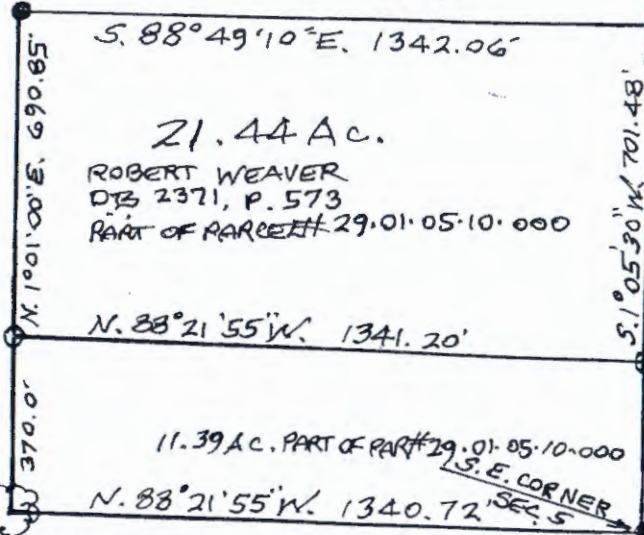 S. 88°49'10"E. 1342.06'
N. 1°01'00"E. 690.85'
21.44 Ac.
ROBERT WEAVER
DB 2371, P. 573
PART OF PARCEL# 29.01.05.10.000
S. 1°05'30"W. 701.48'
N. 88°21'55"W. 1341.20'
370.0'
11.39 Ac. PART OF PAR# 29.01.05.10.000
S.E. CORNER
SEC. 5
N. 88°21'55"W. 1340.72'